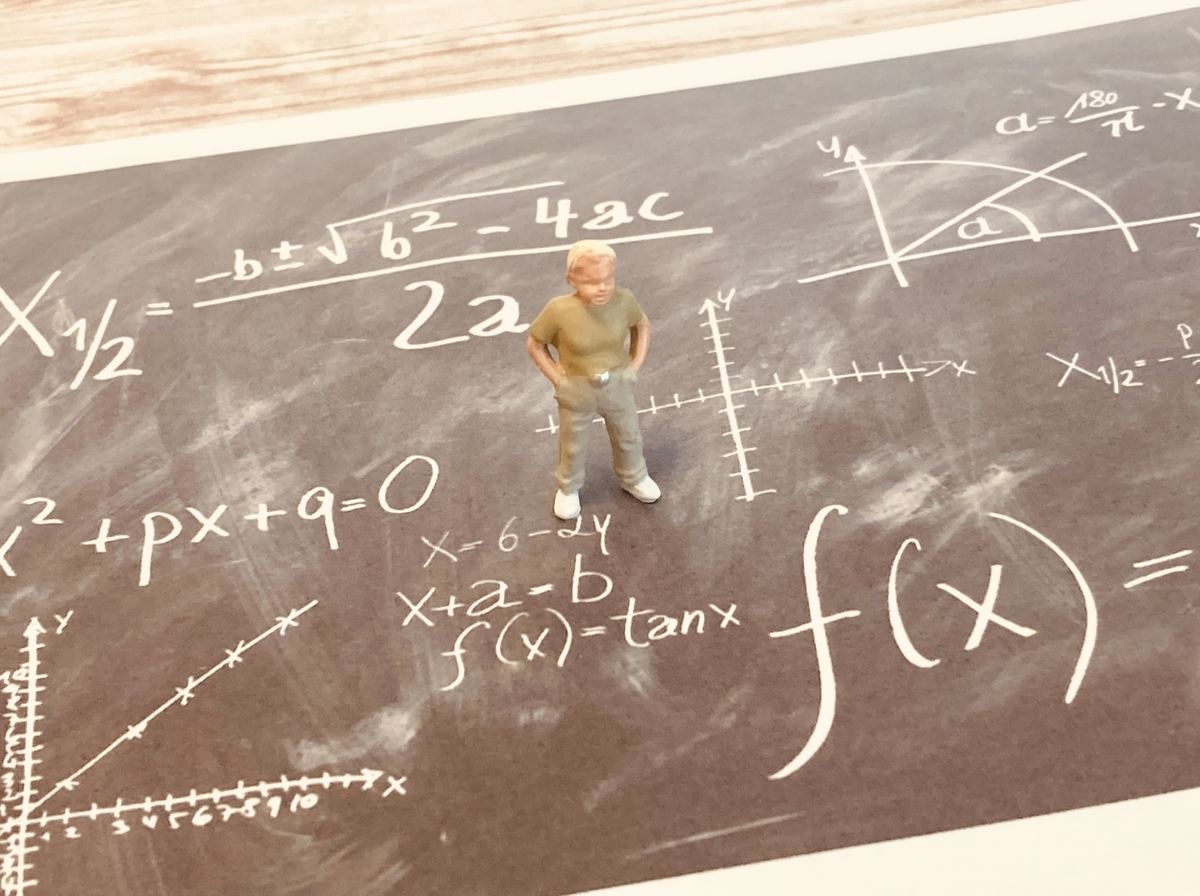 a = 180/π - x
y
a
X1/2 = (-b ± √(b² - 4ac)) / 2a
y
x
X1/2 = - p
x² + px + q = 0
x = 6 - 2y
x + a = b
f(x) = tan x
f(x) =
Y
X
1 2 3 4 5 6 7 8 9 10